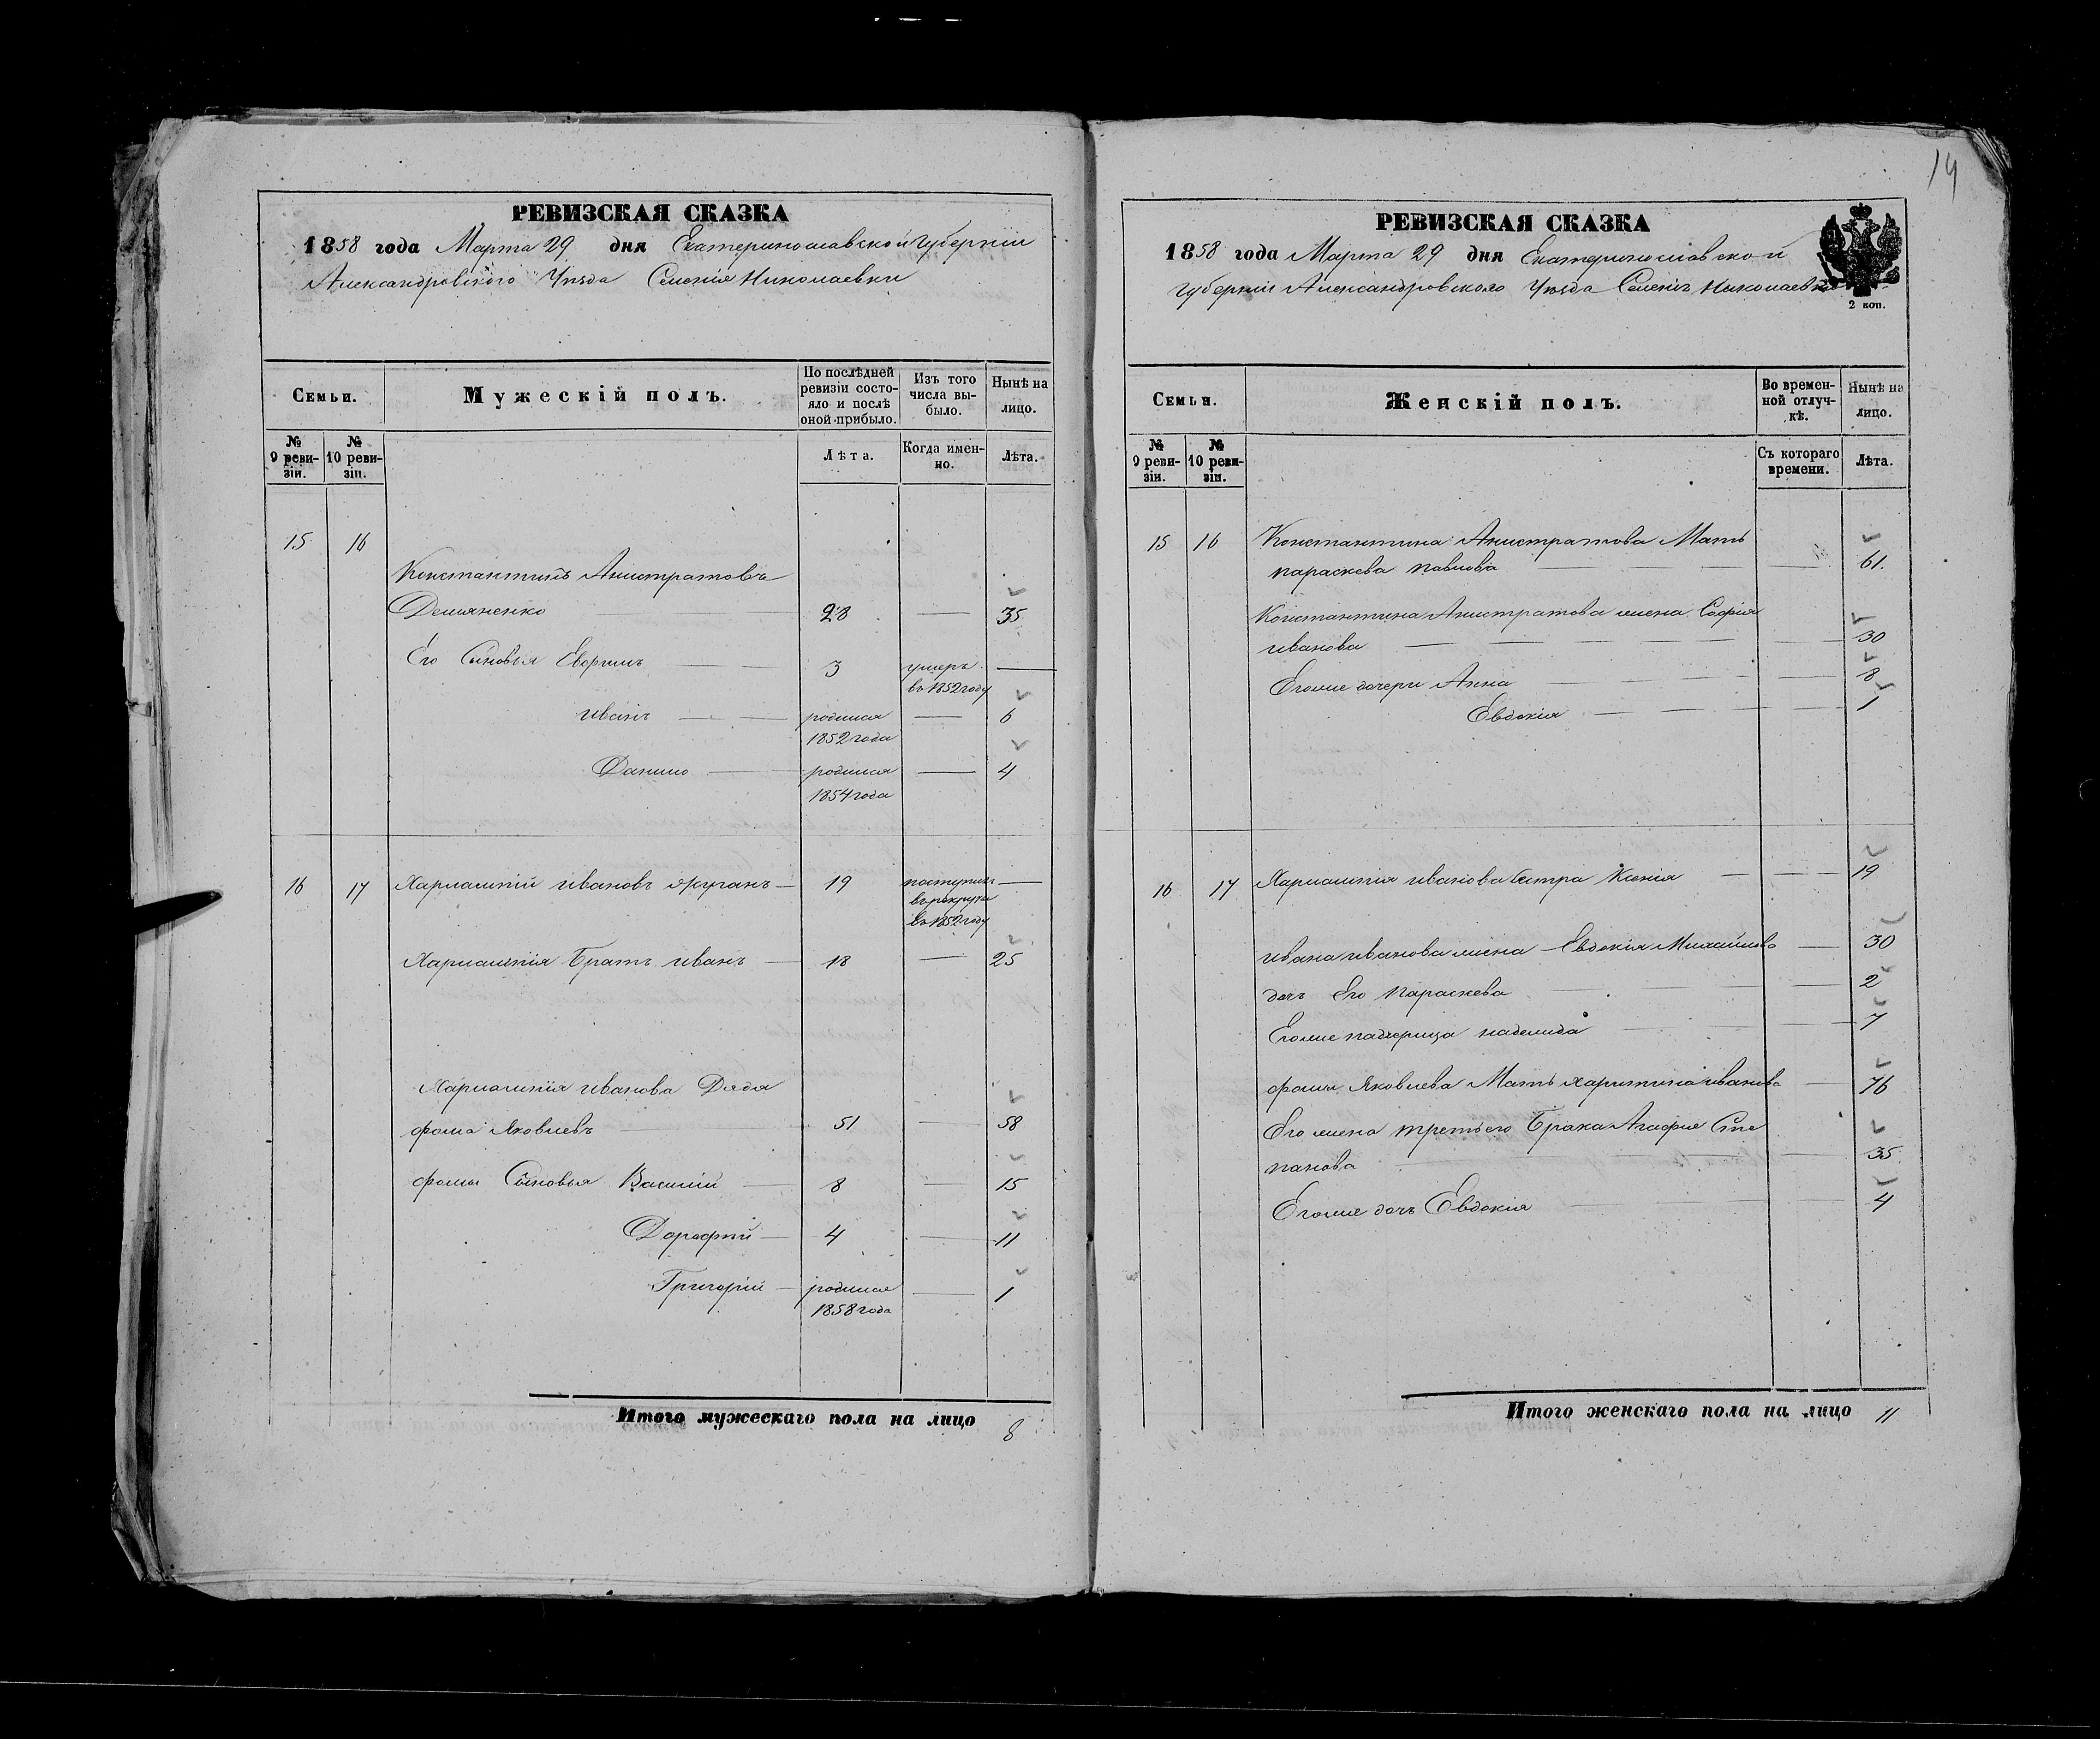 14
РЕВИЗСКАЯ СКАЗКА
1858 года Марта 29 дня Екатеринославской Губерніи
Александровского Уѣзда Селенія Николаевки
Семьи.
Мужескій полъ.
По послѣдней ревизіи состояло и послѣ оной прибыло.
Изъ того числа выбыло.
Нынѣ на лицо.
№ 9 ревизіи.
№ 10 ревизіи.
Лѣта.
Когда именно.
Лѣта.
15 16
Константинъ Анистратовъ
Демяненко 28 — 35
Его Сыновья 3 умеръ —
въ 1852 году
иванъ родился — 6
1852 года
Данило родился — 4
1854 года
16 17 Харлампій ивановъ 19 поступилъ —
въ рекруты
въ 1852 году
Харлампія Братъ иванъ 18 — 25
Харлампія иванова Дядя
фома Яковлевъ 51 — 58
фомы Сыновья Василій 8 — 15
Дорофей 4 — 11
Григорій родился — 1
1858 года
Итого мужескаго пола на лицо 8
РЕВИЗСКАЯ СКАЗКА
1858 года Марта 29 дня Екатеринославской
губерніи Александровского Уѣзда Селенія Николаевки
2 коп.
Семьи.
Женскій полъ.
Во временной отлучкѣ.
Нынѣ на лицо.
№ 9 ревизіи.
№ 10 ревизіи.
Съ котораго времени.
Лѣта.
15 16 Константина Анистратова Мать
параскева павлова — 61.
Константина Анистратова жена София
иванова — 30
Егоже дочери Анна — 8
Евдокія — 1
16 17 Харлампія иванова Сестра Ксенія — 19
ивана иванова жена Евдокія Михайлова — 30
дочь Его Параскева — 2
Егоже падчерица надежда — 7
фомы Яковлева Мать харитина иванова — 76
Его жена третьего Брака Агафия Сте
панова — 35
Егоже дочь Евдокія — 4
Итого женскаго пола на лицо 11